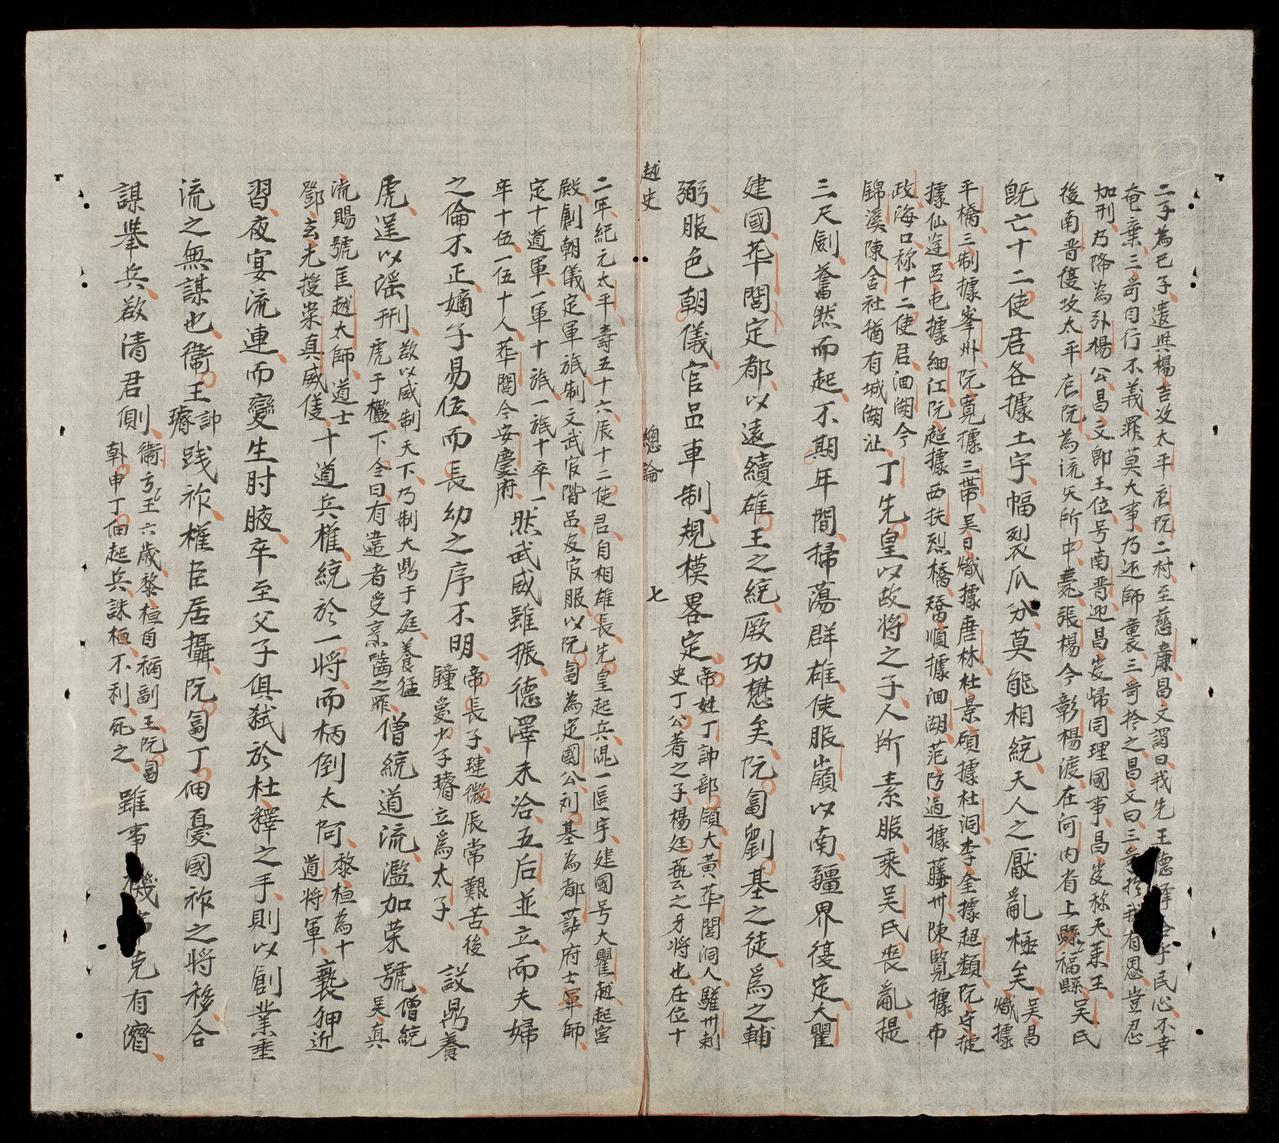 二子為己子遣與楊吉攻太平唐阮二村至慈廉昌文謂曰我先王德澤 民心不幸
奄棄三哥自行不義罪莫大事乃还師襲三哥擒之昌文曰三哥於我有恩豈忍
加刑乃降為張楊公昌文即王位号南晋迎昌岌帰同理國事昌岌称天策王
後南晋復攻太平唐阮為流矢所中薨張楊今彰楊渡在河内省上縣福縣吳氏
既亡十二使君各據土宇幅裂瓜分莫能相統天人之厭亂極矣吳昌
熾據
平橋三制據峯州阮寬據三帶吳日熾據唐林杜景碩據杜洞李奎據超類阮守捷
據仙逰呂屯據細江阮超據西扶烈橋矯順據洄湖范防遏據藤州陳覽據布
政海口称十二使君洄湖今
錦溪陳舍社猶有城湖沚丁先皇以故将之子人所素服乘吳氏丧亂提
三尺劍奮然而起不期年間掃蕩群雄使服嶺以南疆界復定大瞿
建國華閭定都以遠續雄王之統厥功懋矣阮匐劉基之徒為之輔
弼服色朝儀官品車制規模畧定帝姓丁諱部領大黄華閭洞人驩州刺
史丁公著之子楊廷藝之牙将也在位十
越史 總論 七
二年紀元太平壽五十六辰十二使君自相雄長先皇起兵混一區宇建國号大瞿越起宮
殿創朝儀定軍旅制文武官階品及官服以阮匐為定國公刘基為都護府士軍師
定十道軍一軍十旅一旅十卒一
卒十伍一伍十人華閭今安慶府然武威雖振德澤未洽五后並立而夫婦
之倫不正嫡子易位而長幼之序不明帝長子璉微辰常艱苦後
鍾愛少子璿立為太子設鼎養
虎逞以淫刑欲以威制天下乃制大鼎于庭養猛
虎于檻下令曰有違者受烹齧之罪僧統道流濫加荣號僧統
吳真
流賜號匡越太師道士
鄧玄光授崇真威儀十道兵權統於一将而柄倒太阿黎桓為十
道将軍褻狎近
習夜宴流連而變生肘腋卒至父子俱弑於杜釋之手則以創業垂
流之無謀也衞王諱
璿践祚權臣居攝阮匐丁佃憂國祚之将移合
謀舉兵欲清君側衞 王六歲黎桓自稱副王阮匐
丁佃起兵誅桓不利死之雖事 克有濟